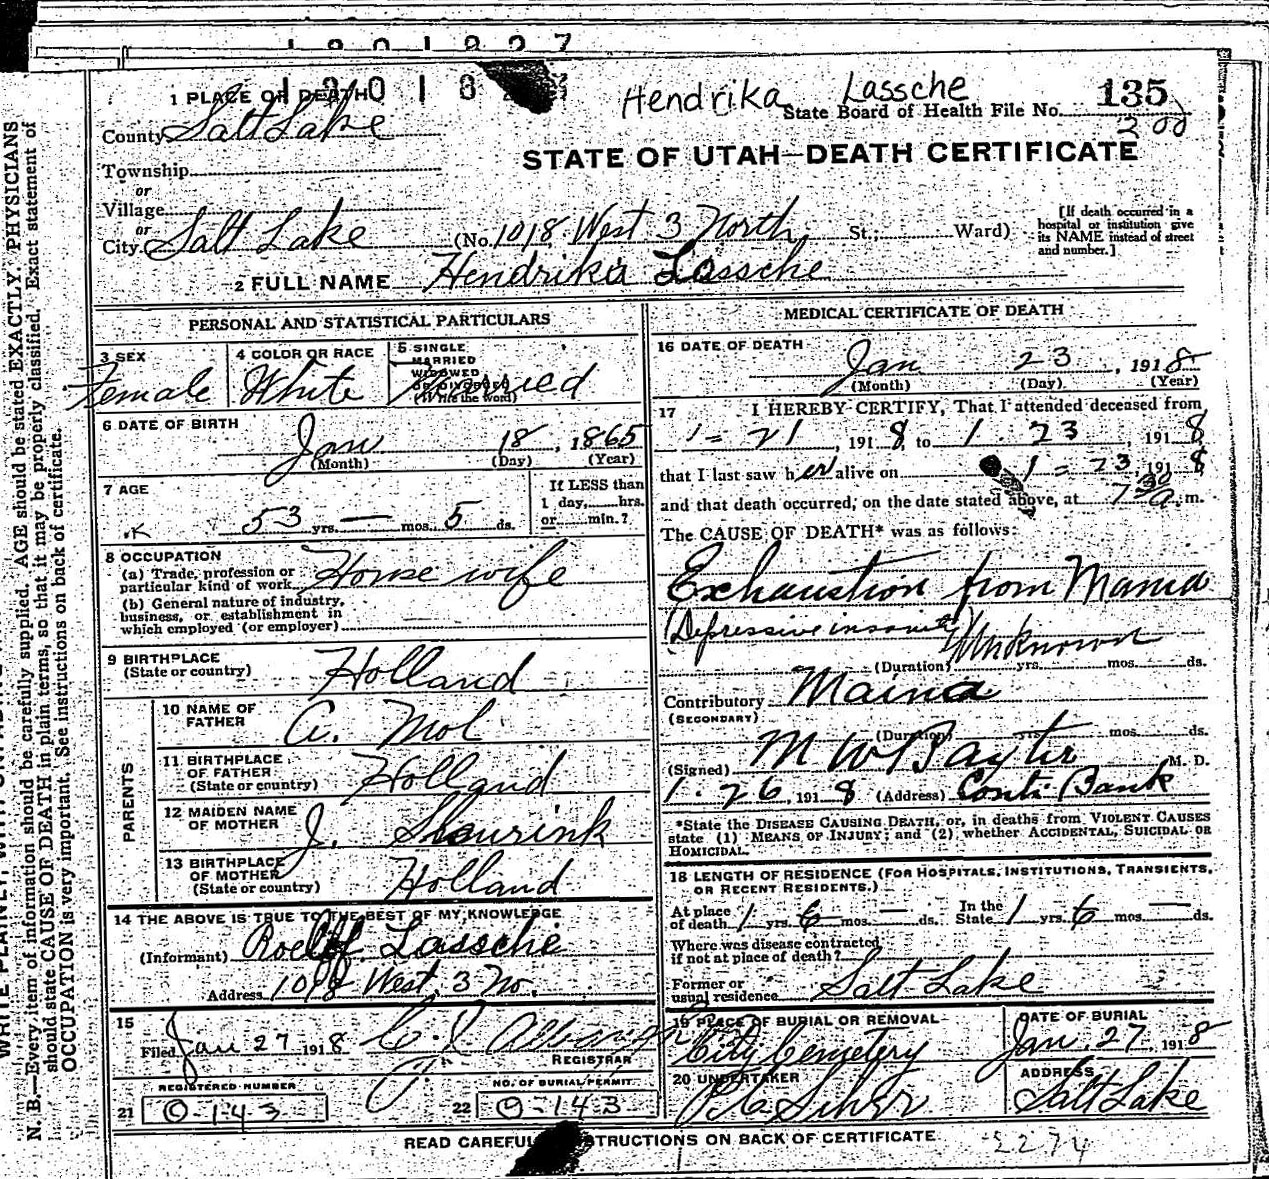 Hendrika Lassche
1 PLACE OF DEATH
State Board of Health File No. 135
200
County Salt Lake
STATE OF UTAH—DEATH CERTIFICATE
Township
or
Village
or
City Salt Lake (No. 1018 West 3 North St.; Ward)
[If death occurred in a hospital or institution give its NAME instead of street and number.]
2 FULL NAME Hendrika Lassche
PERSONAL AND STATISTICAL PARTICULARS
3 SEX
Female
4 COLOR OR RACE
White
5 SINGLE
MARRIED
WIDOWED
OR DIVORCED
(Write the word)
6 DATE OF BIRTH
Jan 18, 1865
(Month) (Day) (Year)
7 AGE
53 yrs. — mos. 5 ds.
If LESS than
1 day, hrs.
or min.?
8 OCCUPATION
(a) Trade, profession or
particular kind of work House wife
(b) General nature of industry,
business, or establishment in
which employed (or employer)
9 BIRTHPLACE
(State or country) Holland
PARENTS
10 NAME OF
FATHER A. Mol
11 BIRTHPLACE
OF FATHER
(State or country) Holland
12 MAIDEN NAME
OF MOTHER J.
13 BIRTHPLACE
OF MOTHER
(State or country) Holland
14 THE ABOVE IS TRUE TO THE BEST OF MY KNOWLEDGE
(Informant) Roelof Lassche
Address 1018 West 3 No.
15
Filed Jan 27 1918
REGISTRAR
REGISTERED NUMBER
21 O-143
NO. OF BURIAL PERMIT
22 O-143
MEDICAL CERTIFICATE OF DEATH
16 DATE OF DEATH
Jan 23, 1918
(Month) (Day) (Year)
17 I HEREBY CERTIFY, That I attended deceased from
1-21, 1918, to 1-23, 1918
that I last saw her alive on 1-23, 1918
and that death occurred, on the date stated above, at 7 30 a m.
The CAUSE OF DEATH* was as follows:
Exhaustion from Mania
(Depressive insanity) Unknown
(Duration) yrs. mos. ds.
Contributory Maina
(SECONDARY)
(Duration) yrs. mos. ds.
(Signed) M W Bayter M. D.
1-26, 1918 (Address) Conti. Bank
*State the DISEASE CAUSING DEATH, or, in deaths from VIOLENT CAUSES
state (1) MEANS OF INJURY; and (2) whether ACCIDENTAL, SUICIDAL OR
HOMICIDAL.
18 LENGTH OF RESIDENCE (FOR HOSPITALS, INSTITUTIONS, TRANSIENTS,
OR RECENT RESIDENTS.)
At place
of death 1 yrs. 6 mos. — ds. In the
State 1 yrs. 6 mos. — ds.
Where was disease contracted,
if not at place of death?
Former or
usual residence Salt Lake
19 PLACE OF BURIAL OR REMOVAL
City Cemetery
DATE OF BURIAL
Jan. 27, 1918
20 UNDERTAKER
ADDRESS
Salt Lake
READ CAREFUL STRUCTIONS ON BACK OF CERTIFICATE
2274
N. B.—Every item of information should be carefully supplied. AGE should be stated EXACTLY. PHYSICIANS
should state CAUSE OF DEATH in plain terms, so that it may be properly classified. Exact statement of
OCCUPATION is very important. See instructions on back of certificate.